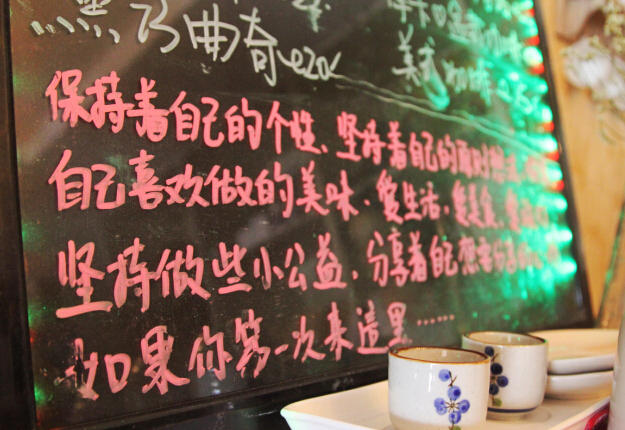 黑巧曲奇
美式咖啡
保持着自己的个性、坚持着自己的
自己喜欢做的美味·爱生活·爱美食
坚持做些小公益、分享着自己想要分享的
如果你第一次来这里……